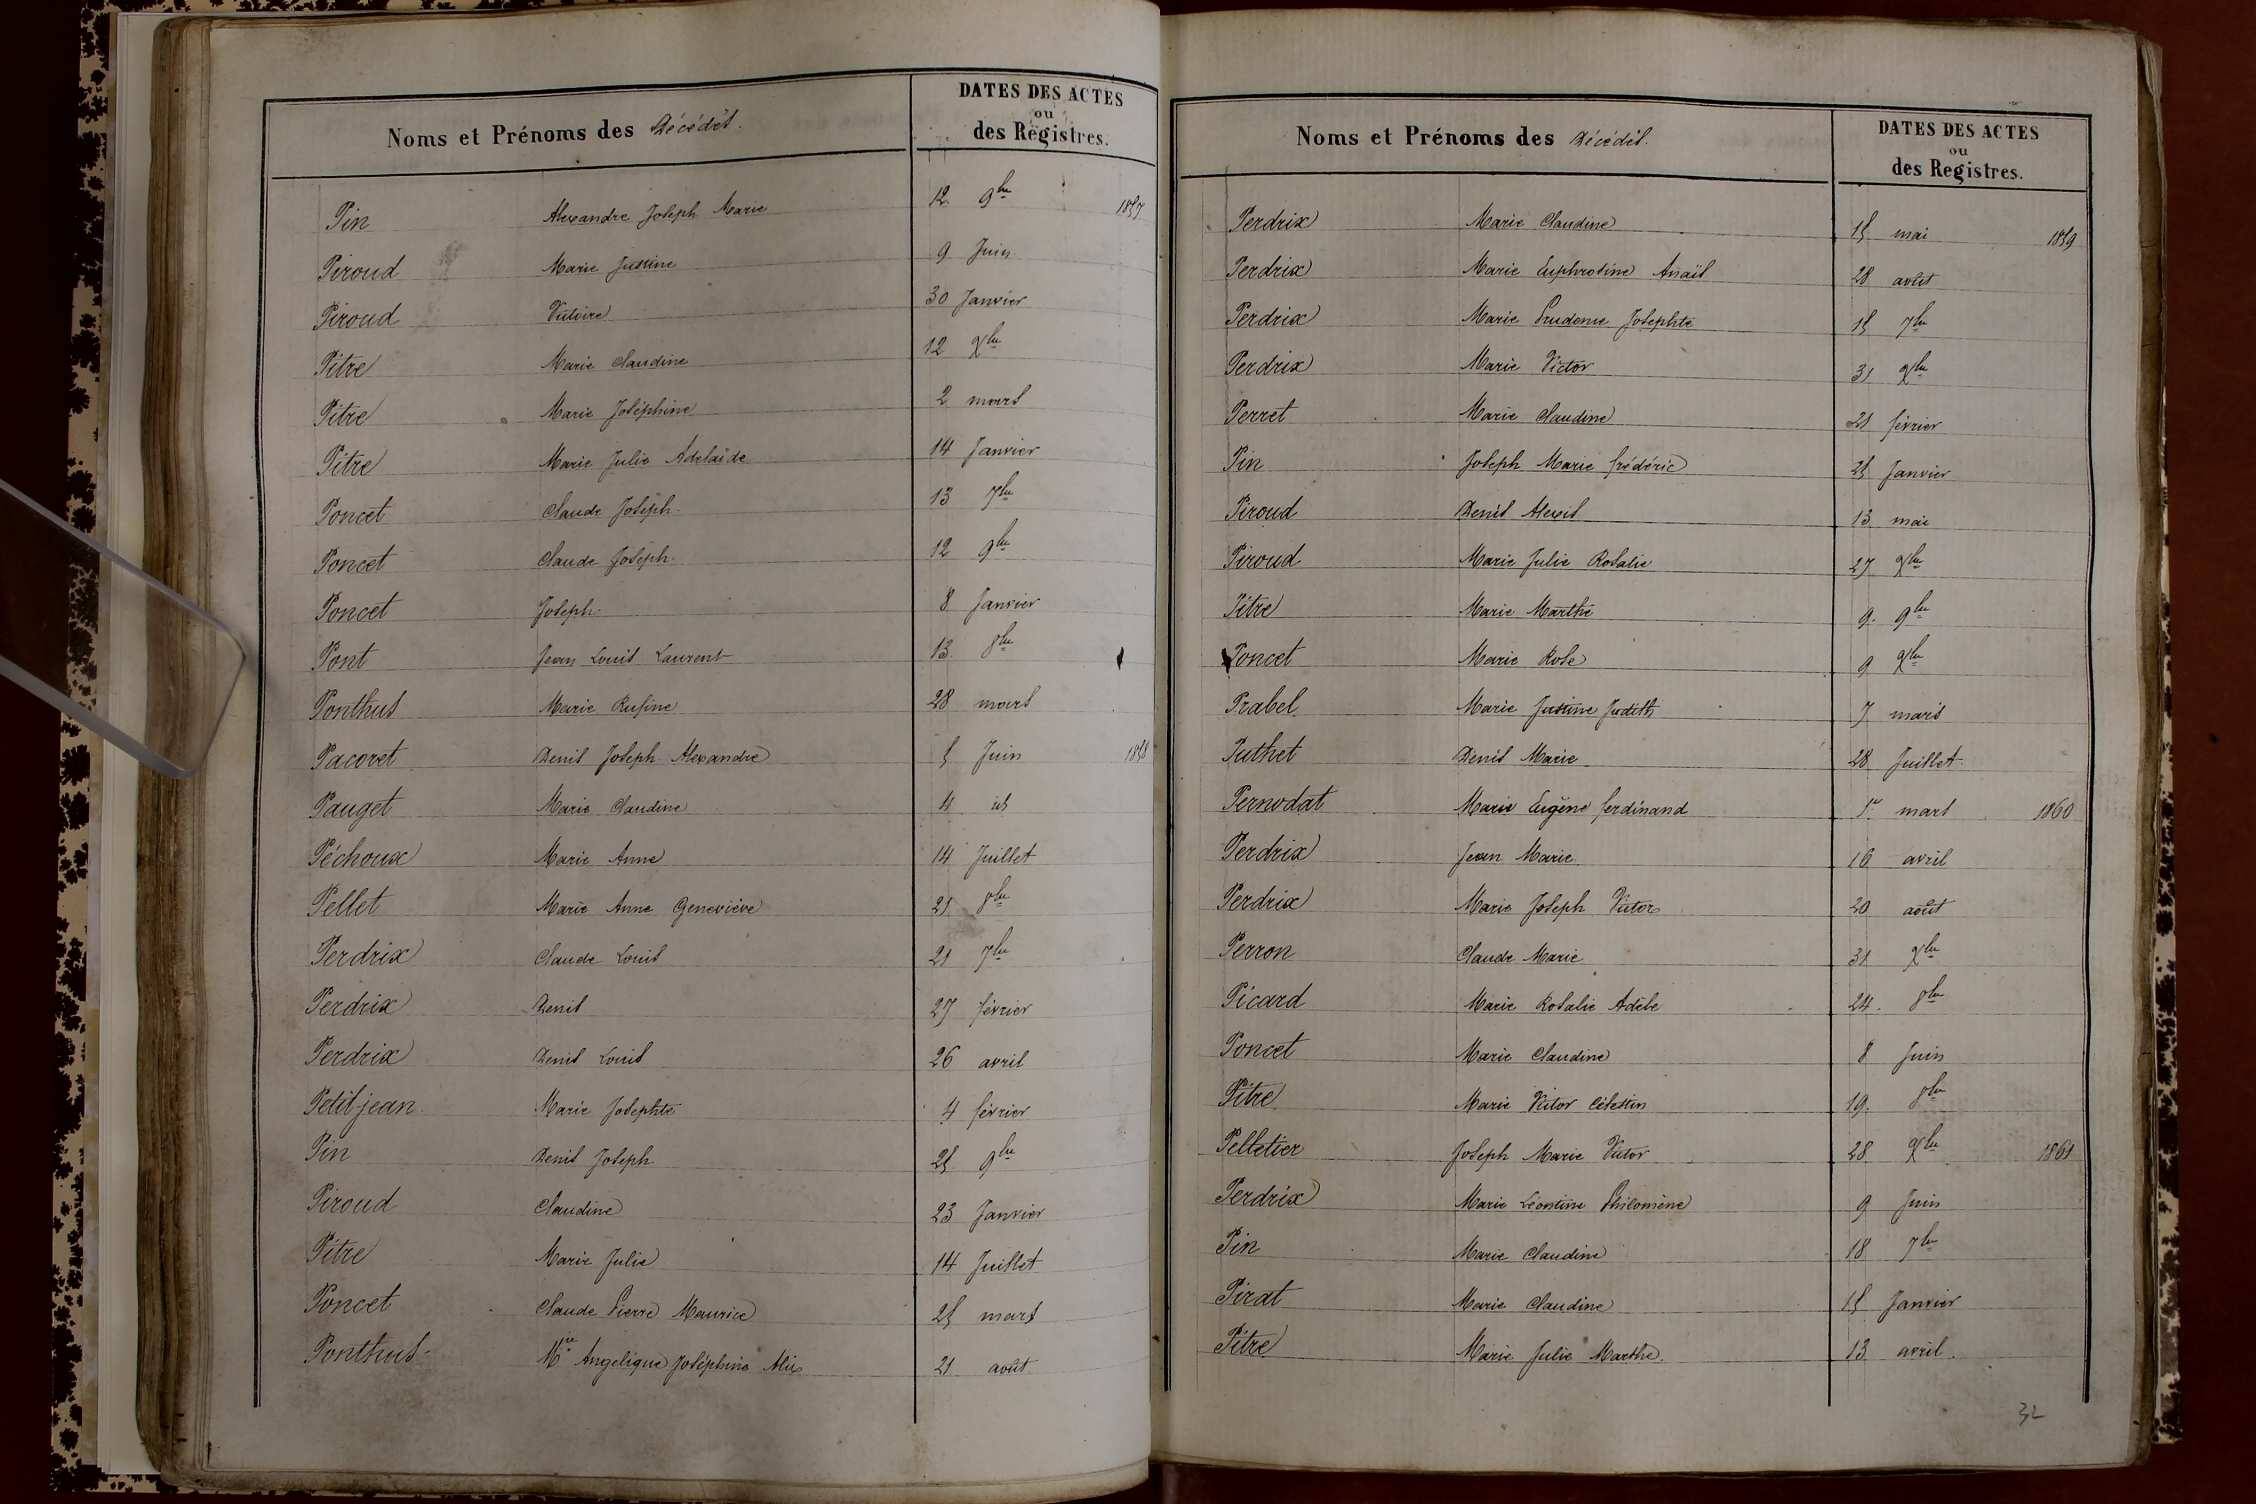 Noms et Prénoms des Décédés.
DATES DES ACTES
ou
des Registres.
Pin Alexandre Joseph Marie 12 9bre 1857
Piroud Marie Justine 9 Juin
Piroud Victoire 30 Janvier
Pitre Marie Claudine 12 Xbre
Pitre Marie Joséphine 2 mars
Pitre Marie Julie Adelaïde 14 Janvier
Poncet Claude Joseph 13 7bre
Poncet Claude Joseph 12 9bre
Poncet Joseph 8 Janvier
Pont Jean Louis Laurent 13 8bre
Ponthus Marie Rufine 28 mars
Pacoret Denis Joseph Alexandre 5 Juin 1858
Pauget Marie Claudine 4 id
Péchoux Marie Anne 14 Juillet
Pellet Marie Anne Geneviève 21 8bre
Perdrix Claude Louis 21 7bre
Perdrix Denis 27 février
Perdrix Denis Louis 26 avril
Petitjean Marie Josephte 4 février
Pin Denis Joseph 25 9bre
Piroud Claudine 23 Janvier
Pitre Marie Julie 14 Juillet
Poncet Claude Pierre Maurice 25 mars
Ponthus Mie Angelique Joséphine Alix 21 août
Noms et Prénoms des Décédés.
DATES DES ACTES
ou
des Registres.
Perdrix Marie Claudine 15 mai 1859
Perdrix Marie Euphrosine Anaïs 28 août
Perdrix Marie Prudence Josephte 15 7bre
Perdrix Marie Victor 31 Xbre
Perret Marie Claudine 21 février
Pin Joseph Marie frédéric 25 Janvier
Piroud Denis Alexis 13 mai
Piroud Marie Julie Rosalie 27 Xbre
Pitre Marie Marthe 9 9bre
Poncet Marie Rose 9 Xbre
Prabel Marie Justine Judith 7 mars
Puthet Denis Marie 28 Juillet
Pernodat Marie Eugène ferdinand 1er mars 1860
Perdrix Jean Marie 16 avril
Perdrix Marie Joseph Victor 20 août
Perron Claude Marie 31 Xbre
Picard Marie Rosalie Adèle 24 8bre
Poncet Marie Claudine 8 Juin
Pitre Marie Victor Célestin 19 8bre
Pelletier Joseph Marie Victor 28 Xbre 1861
Perdrix Marie Léontine Philomène 9 Juin
Pin Marie Claudine 18 7bre
Pirat Marie Claudine 15 Janvier
Pitre Marie Julie Marthe. 13 avril.
32